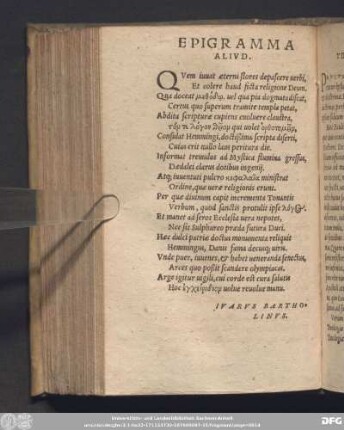 EPIGRAMMA
ALIVD.
QVem iuuat æterni flores depascere verbi,
Et colere haud ficta religione Deum.
Qua doceat μεθόδῳ, uel qua pia dogmata discat,
Certus quo superum tramite templa petat,
Abdita scripturæ cupiens euoluere claustra,
qui uolet
Consulat Hemmingi, doctissima scripta diserti,
Cuius erit nullo laus peritura die.
Informat tremulos ad Mystica flumina gressus,
Dædalei clarus dotibus ingenij.
Atq; iuuentuti pulcro ministrat
Ordine, quæ veræ religionis erunt.
Per quæ diuinum capit incrementa Tonantis
Verbum, quod sancto protulit ipse λόγῳ.
Et manet ad seros Ecclesia vera nepotes,
Nec sit Sulphureo præda futura Duci.
Hæc dulci patriæ doctus monumenta reliquit
Hemmingius, Danis fama decusq; uiris.
Vnde puer, iuuenes, & habet ueneranda senectus,
Artes quo possit scandere olympiacas.
Ergo igitur uigili, cui cordi est cura salutis
Hoc ἐγχειρίδιον uolue reuolue manu.
IVARVS BARTHO-
LINVS.